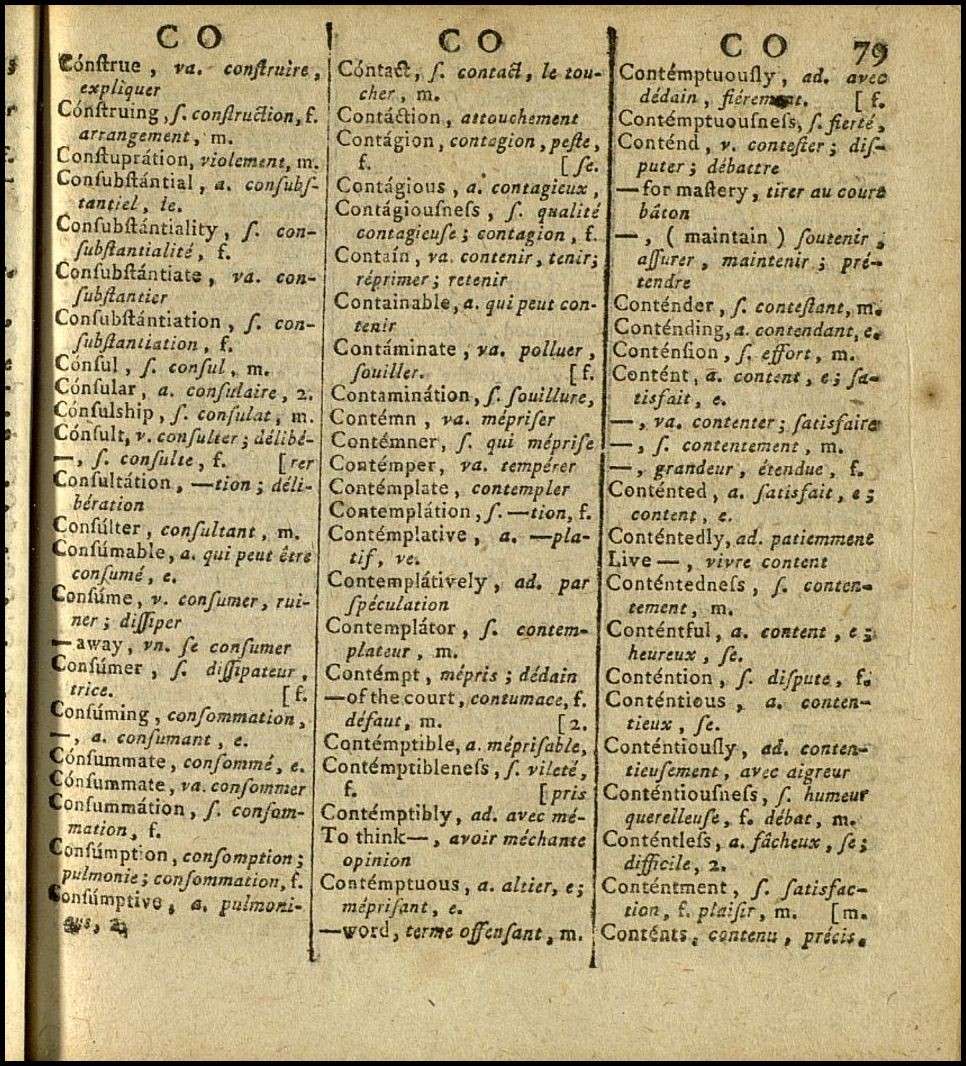 C O
Cónſtrue, va. conſtruire,
expliquer
Cónſtruing, ſ. conſtruction, f.
arrangement, m.
Conſtuprátion, violement, m.
Conſubſtántial, a. conſubſ-
tantiel, le.
Conſubſtántiality, ſ. con-
ſubſtantialité, f.
Conſubſtántiate, va. con-
ſubſtantier
Conſubſtántiation, ſ. con-
ſubſtantiation, f.
Cónſul, ſ. conſul, m.
Cónſular, a. conſulaire, 2.
Cónſulship, ſ. conſulat, m.
Cónſult, v. conſulter; délibé-
—, ſ. conſulte, f. [rer
Conſultátion, —tion; déli-
bération
Conſúlter, conſultant, m.
Conſúmable, a. qui peut être
conſumé, e.
Conſúme, v. conſumer, rui-
ner; diſſiper
—away, vn. ſe conſumer
Conſúmer, ſ. diſſipateur,
trice. [f.
Conſúming, conſommation,
—, a. conſumant, e.
Cónſummate, conſommé, e.
Cónſummate, va. conſommer
Conſummátion, ſ. conſom-
mation, f.
Conſúmption, conſomption;
pulmonie; conſommation, f.
Conſúmptive, a. pulmoni-
C O
Cóntact, ſ. contact, le tou-
cher, m.
Contáction, attouchement
Contágion, contagion, peſte,
f. [ſe.
Contágious, a. contagieux,
Contágiouſneſs, ſ. qualité
contagieuſe; contagion, f.
Contaín, va. contenir, tenir;
réprimer; retenir
Containable, a. qui peut con-
tenir
Contáminate, va. polluer,
ſouiller. [f.
Contaminátion, ſ. ſouillure,
Contémn, va. mépriſer
Contémner, ſ. qui mépriſe
Contémper, va. tempérer
Contémplate, contempler
Contemplátion, ſ. —tion, f.
Contémplative, a. —pla-
tif, ve.
Contemplátively, ad. par
ſpéculation
Contemplátor, ſ. contem-
plateur, m.
Contémpt, mépris; dédain
—of the court, contumace, f.
défaut, m. [2.
Contémptible, a. mépriſable,
Contémptibleneſs, ſ. vileté,
f. [pris
Contémptibly, ad. avec mé-
To think—, avoir méchante
opinion
Contémptuous, a. altier, e;
mépriſant, e.
—word, terme offenſant, m.
C O 79
Contémptuouſly, ad. avec
dédain, fiérement. [f.
Contémptuouſneſs, ſ. fierté,
Conténd, v. conteſter; diſ-
puter; débattre
—for maſtery, tirer au court
bâton
—, (maintain) ſoutenir,
aſſurer, maintenir; pré-
tendre
Conténder, ſ. conteſtant, m.
Conténding, a. contendant, e.
Conténſion, ſ. effort, m.
Contént, a. content, e; ſa-
tisfait, e.
—, va. contenter; ſatisfaire
—, ſ. contentement, m.
—, grandeur, étendue, f.
Conténted, a. ſatisfait, e;
content, e.
Conténtedly, ad. patiemment
Live —, vivre content
Conténtedneſs, ſ. conten-
tement, m.
Conténtful, a. content, e;
heureux, ſe.
Conténtion, ſ. diſpute, f.
Conténtious, a. conten-
tieux, ſe.
Conténtiouſly, ad. conten-
tieuſement, avec aigreur
Conténtiouſneſs, ſ. humeur
querelleuſe, f. débat, m.
Conténtleſs, a. fâcheux, ſe;
difficile, 2.
Conténtment, ſ. ſatisfac-
tion, f. plaiſir, m. [m.
Conténts, contenu, précis.